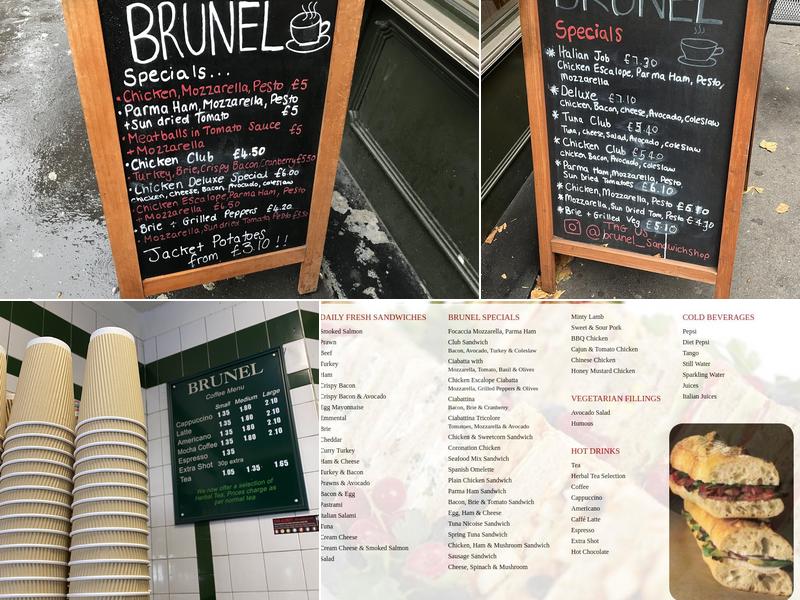 BRUNEL
Specials...
• Chicken, Mozzarella, Pesto £5
• Parma Ham, Mozzarella, Pesto
+ Sun dried Tomato £5
• Meatballs in Tomato Sauce £5
+ Mozzarella
• Chicken Club £4.50
• Turkey, Brie, Crispy Bacon, Cranberry £5.50
• Chicken Deluxe Special £6.00
chicken, cheese, Bacon, Avocado, coleslaw
• Chicken Escalope, Parma Ham, Pesto
+ Mozzarella £6.50
• Brie + Grilled Peppers £4.20
• Mozzarella, Sundried Tomato, Pesto £3.50
Jacket Potatoes
from £3.10 !!
BRUNEL
Specials
* Italian Job £7.30
Chicken Escalope, Parma Ham, Pesto,
Mozzarella
* Deluxe £7.10
Chicken, Bacon, cheese, Avocado, Coleslaw
* Tuna Club £5.40
Tuna, cheese, Salad, Avocado, coleslaw
* Chicken Club £5.40
chicken Bacon, Avocado, coleslaw
* Parma Ham, Mozzarella, Pesto
Sun Dried Tomatoes £6.10
* Chicken, Mozzarella, Pesto
* Mozzarella, Sun dried Tom, Pesto £4.30
* Brie + Grilled Veg £5.10
TAG US
@brunel_Sandwichshop
BRUNEL
Coffee Menu
Small Medium Large
Cappuccino 1.35 1.80 2.10
Latte 1.35 1.80 2.10
Americano 1.35 1.80 2.10
Mocha Coffee 1.35 1.80 2.10
Espresso 1.35
Extra Shot 30p extra
Tea 1.05 1.35 1.65
We now offer a selection of
Herbal Tea, Prices charge as
per normal tea
DAILY FRESH SANDWICHES
Smoked Salmon
Prawn
Beef
Turkey
Ham
Crispy Bacon
Crispy Bacon & Avocado
Egg Mayonnaise
Emmental
Brie
Cheddar
Curry Turkey
Ham & Cheese
Turkey & Bacon
Prawns & Avocado
Bacon & Egg
Pastrami
Italian Salami
Tuna
Cream Cheese
Cream Cheese & Smoked Salmon
Salad
BRUNEL SPECIALS
Focaccia Mozzarella, Parma Ham
Club Sandwich
Bacon, Avocado, Turkey & Coleslaw
Ciabatta with
Mozzarella, Tomato, Basil & Olives
Chicken Escalope Ciabatta
Mozzarella, Grilled Peppers & Olives
Ciabattina
Bacon, Brie & Cranberry
Ciabattina Tricolore
Tomatoes, Mozzarella & Avocado
Chicken & Sweetcorn Sandwich
Coronation Chicken
Seafood Mix Sandwich
Spanish Omelette
Plain Chicken Sandwich
Parma Ham Sandwich
Bacon, Brie & Tomato Sandwich
Egg, Ham & Cheese
Tuna Nicoise Sandwich
Spring Tuna Sandwich
Chicken, Ham & Mushroom Sandwich
Sausage Sandwich
Cheese, Spinach & Mushroom
Minty Lamb
Sweet & Sour Pork
BBQ Chicken
Cajun & Tomato Chicken
Chinese Chicken
Honey Mustard Chicken
VEGETARIAN FILLINGS
Avocado Salad
Humous
HOT DRINKS
Tea
Herbal Tea Selection
Coffee
Cappuccino
Americano
Caffé Latte
Espresso
Extra Shot
Hot Chocolate
COLD BEVERAGES
Pepsi
Diet Pepsi
Tango
Still Water
Sparkling Water
Juices
Italian Juices